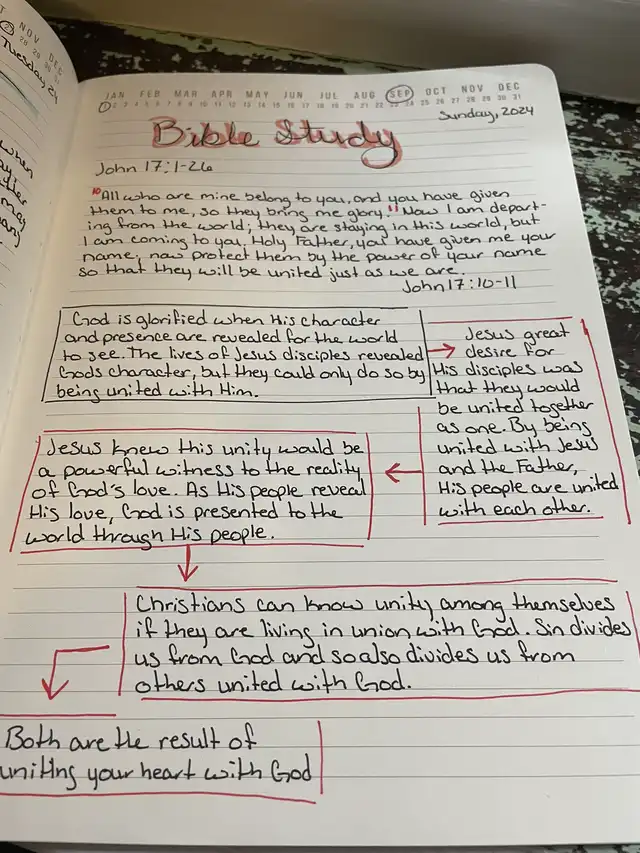 NOV DEC
Tuesday, 24
when
may
JAN FEB MAR APR MAY JUN JUL AUG SEP OCT NOV DEC
1 2 3 4 5 6 7 8 9 10 11 12 13 14 15 16 17 18 19 20 21 22 23 24 25 26 27 28 29 30 31
Sunday, 2024
Bible Study
John 17:1-26
"10 All who are mine belong to you, and you have given
them to me, so they bring me glory. 11 Now I am depart-
ing from the world; they are staying in this world, but
I am coming to you. Holy Father, you have given me your
name; now protect them by the power of your name
so that they will be united just as we are.
John 17:10-11
God is glorified when His character
and presence are revealed for the world
to see. The lives of Jesus disciples revealed
Gods character, but they could only do so by
being united with Him.
Jesus great
desire for
His disciples was
that they would
be united together
as one. By being
united with Jesus
and the Father,
His people are united
with each other.
Jesus knew this unity would be
a powerful witness to the reality
of God's love. As His people reveal
His love, God is presented to the
world through His people.
Christians can know unity among themselves
if they are living in union with God. Sin divides
us from God and so also divides us from
others united with God.
Both are the result of
uniting your heart with God